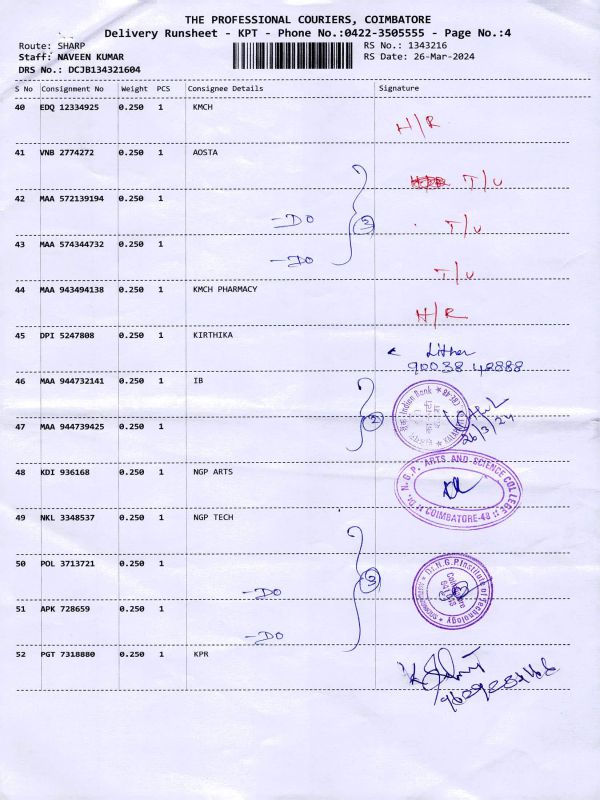 THE PROFESSIONAL COURIERS, COIMBATORE
Delivery Runsheet - KPT - Phone No.:0422-3505555 - Page No.:4
Route: SHARP RS No.: 1343216
Staff: NAVEEN KUMAR RS Date: 26-Mar-2024
DRS No.: DCJB134321604
S No Consignment No Weight PCS Consignee Details Signature
40 EDQ 12334925 0.250 1 KMCH
H/R
41 VNB 2774272 0.250 1 AOSTA
T/U
42 MAA 572139194 0.250 1
-DO 3 T/U
43 MAA 574344732 0.250 1
-DO T/U
44 MAA 943494138 0.250 1 KMCH PHARMACY
H/R
45 DPI 5247808 0.250 1 KIRTHIKA
90038 42888
46 MAA 944732141 0.250 1 IB
Indian Bank
2 26/3/24
47 MAA 944739425 0.250 1
48 KDI 936168 0.250 1 NGP ARTS
Dr. N.G.P. ARTS AND SCIENCE COLLEGE
COIMBATORE-48
49 NKL 3348537 0.250 1 NGP TECH
50 POL 3713721 0.250 1
-DO 3
Dr.N.G.P.Institute of Technology
Coimbatore
641 048
51 APK 728659 0.250 1
-DO
52 PGT 7318880 0.250 1 KPR